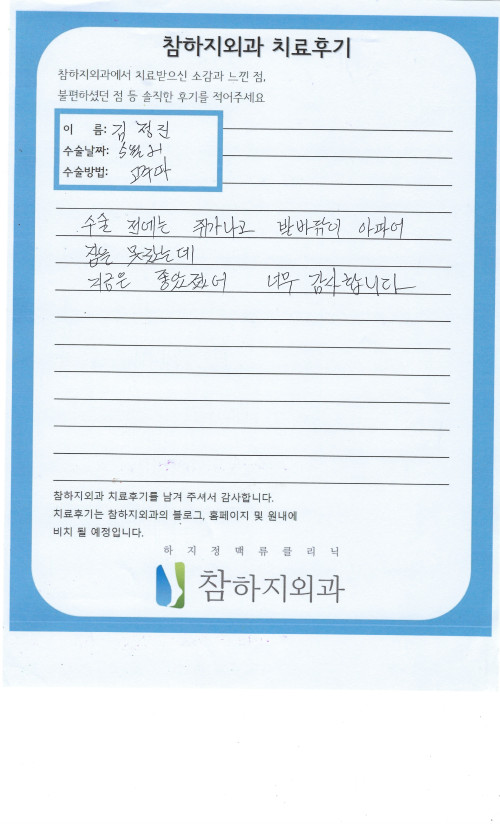 참하지외과 치료후기
참하지외과에서 치료받으신 소감과 느낀 점,
불편하셨던 점 등 솔직한 후기를 적어주세요
이 름: 김 정진
수술날짜: 5월
수술방법: 고주파
수술 전에는 쥐가나고 발바닥이 아파서
잠을 못잤는데
지금은 좋았졌어 너무 감사합니다
참하지외과 치료후기를 남겨 주셔서 감사합니다.
치료후기는 참하지외과의 블로그, 홈페이지 및 원내에
비치 될 예정입니다.
하지정맥류클리닉
참하지외과